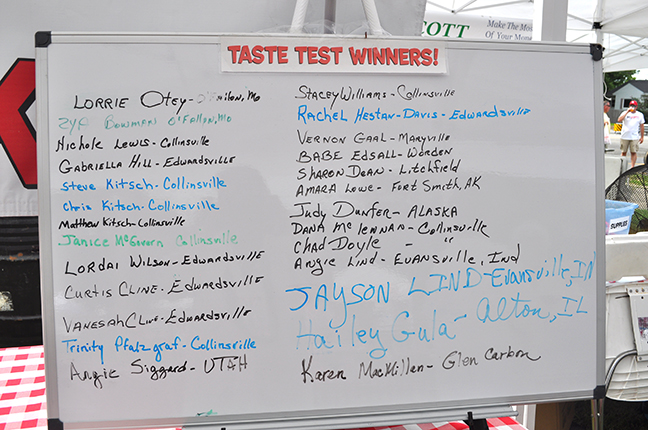 COTT
MAKE THE MO
OF YOUR MONE
TASTE TEST WINNERS!
LORRIE OTEY - O'Fallon, MO
Zya BOWMAN O'FALLON, MO
NICHOLE LEWIS - Collinsville
GABRIELLA HILL - EDWARDSVILLE
Steve Kitsch - Collinsville
Chris Kitsch - Collinsville
Matthew Kitsch - Collinsville
Janice McGovern Collinsville
LORDAI WILSON - EDWARDSVILLE
CURTIS CLINE - EDWARDSVILLE
VANESAH CLINE - EDWARDSVILLE
Trinity Pfalzgraf - Collinsville
Angie Siggard - UTAH
STACEY WILLIAMS - COLLINSVILLE
RACHEL HESTAN-DAVIS - EDWARDSVILLE
VERNON GAAL - MARYVILLE
BABE EDSALL - WORDEN
SHARON DEAN - LITCHFIELD
AMARA LOWE - FORT SMITH, AK
JUDY DUNFER - ALASKA
DANA McLENNAN - COLLINSVILLE
CHAD DOYLE - "
ANGIE LIND - EVANSVILLE, IND
JAYSON LIND - Evansville, IN
Hailey Gula - Alton, IL
Karen MacMillan - Glen Carbon
SUPPLIES